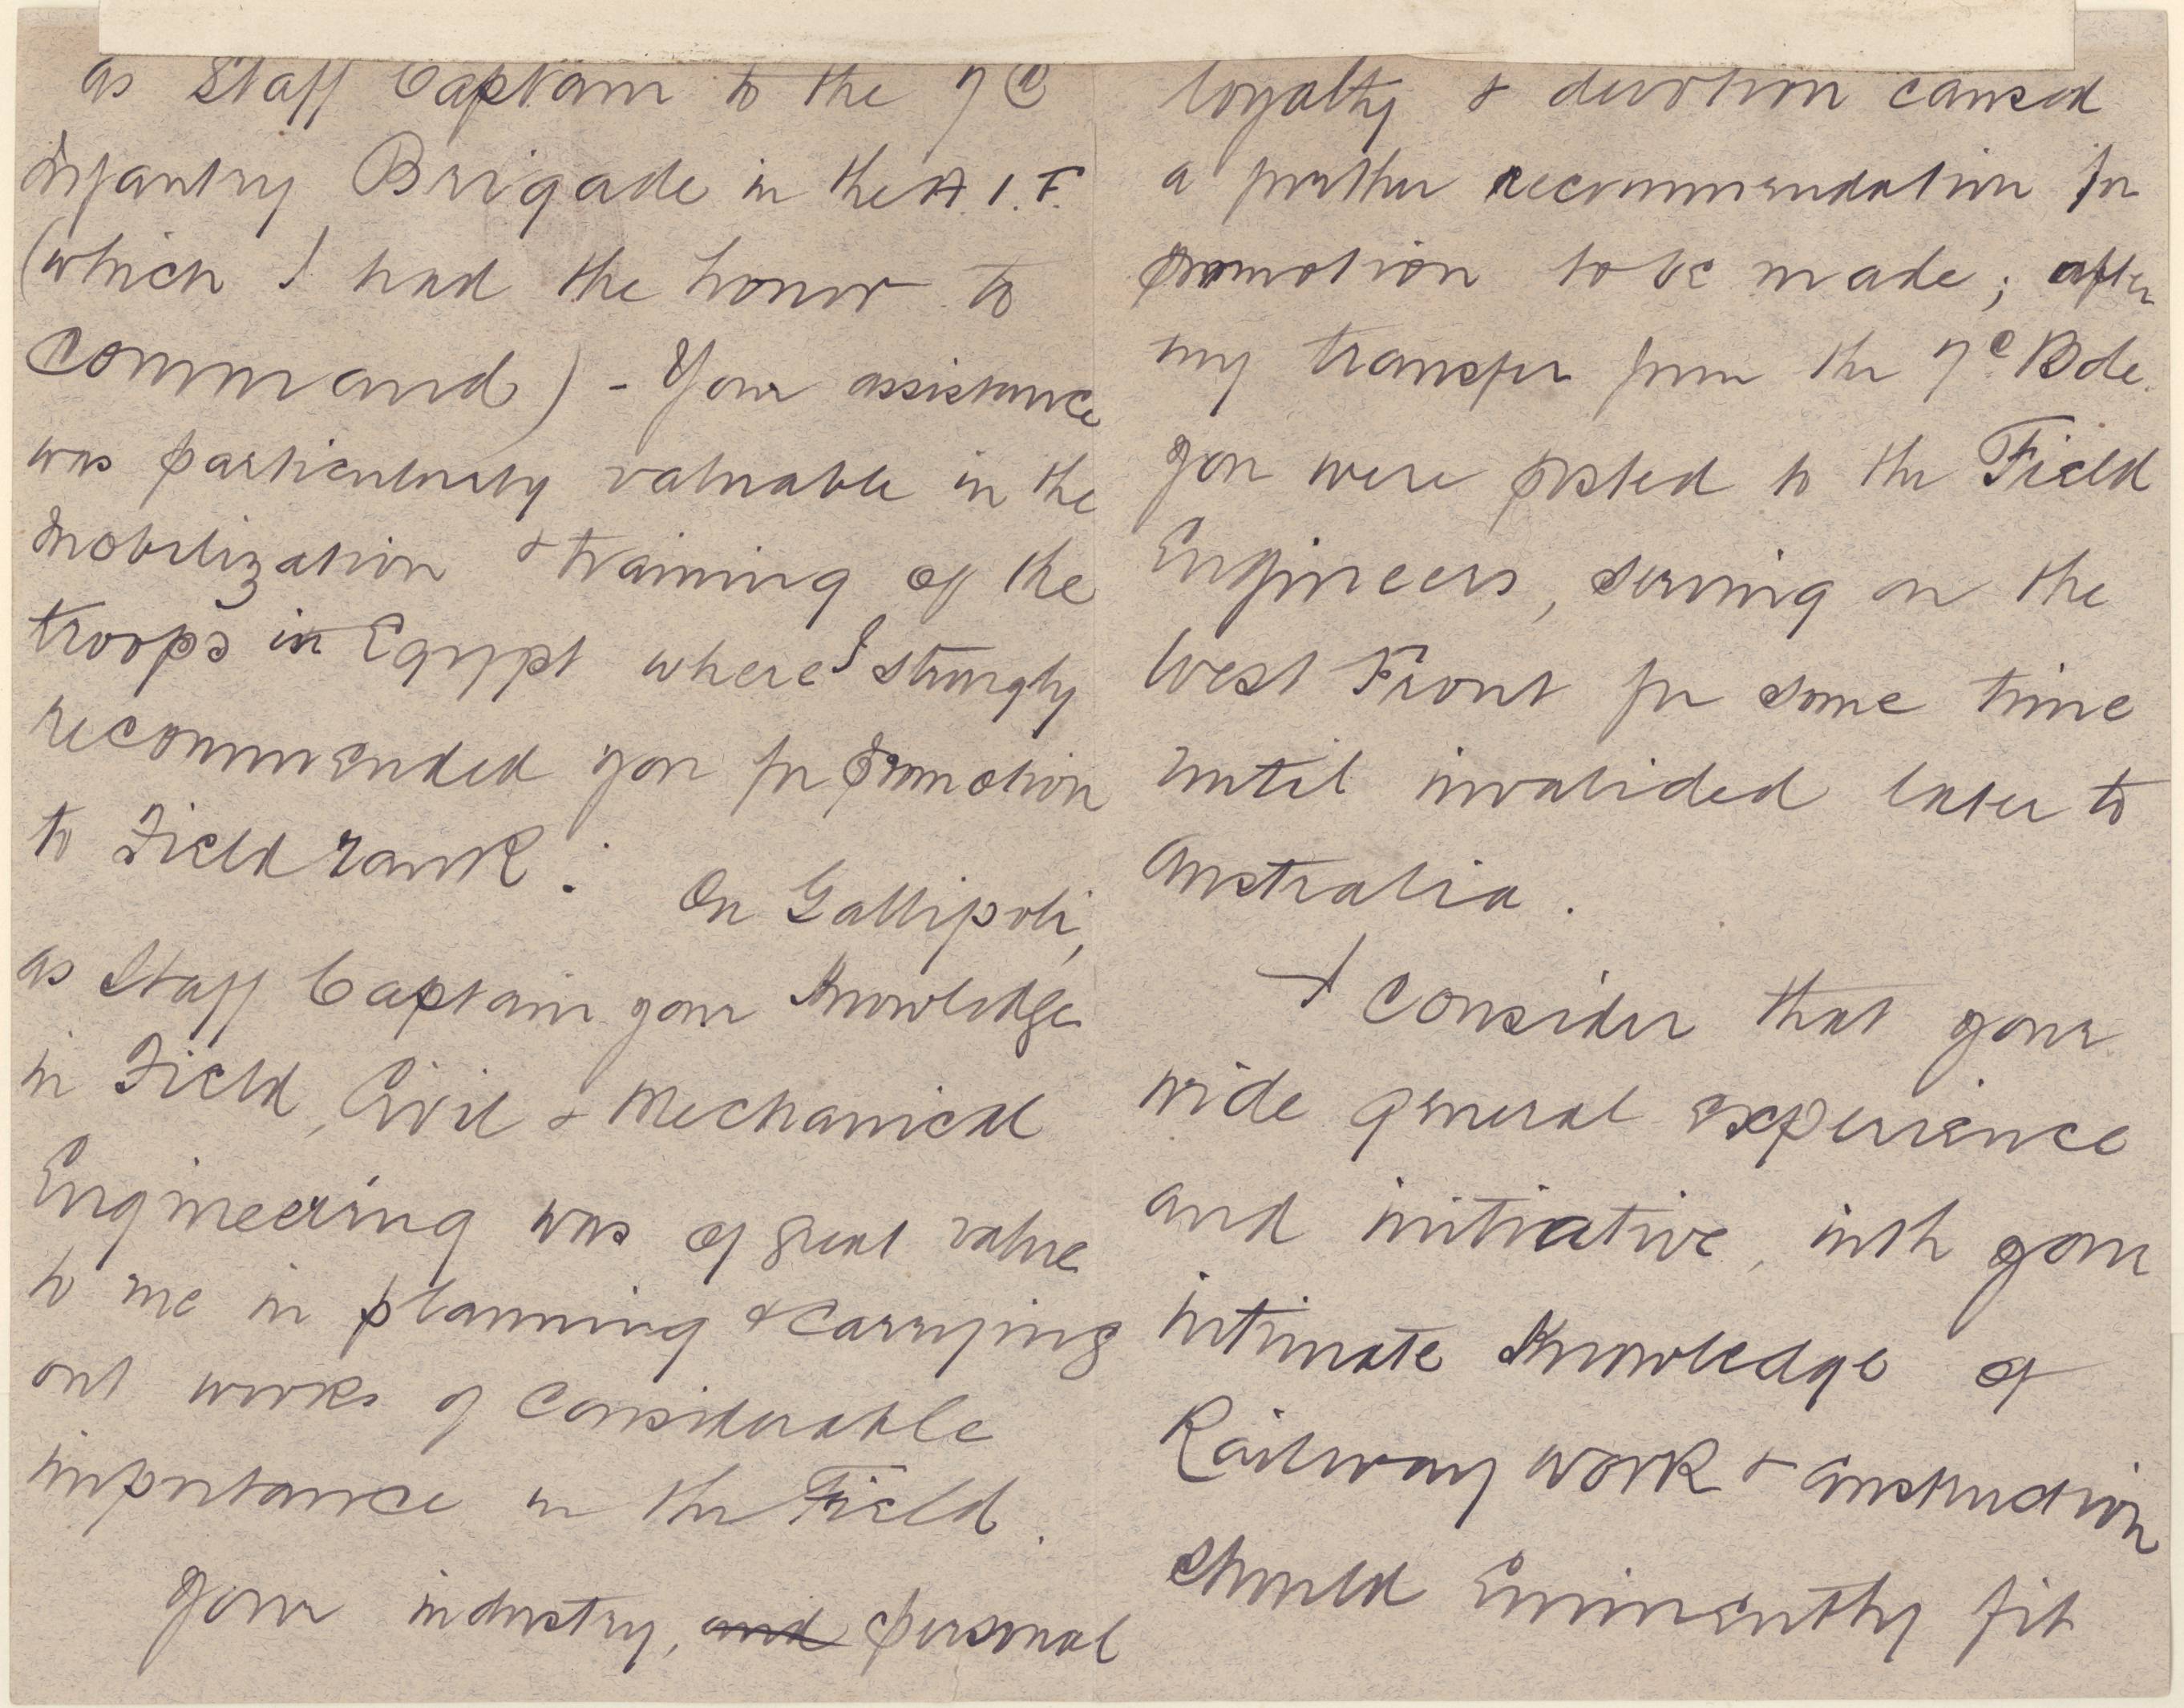 as Staff Captain to the 7e
Infantry Brigade in the A.I.F.
(which I had the honor to
command) - Your assistance
was particularly valuable in the
mobilization & training of the
troops in Egypt where I strongly
recommended you for promotion
to Field rank. On Gallipoli,
as Staff Captain your knowledge
in Field, Civil & Mechanical
Engineering was of great value
to me in planning & carrying
out works of considerable
importance in the Field.
Your industry, and personal
loyalty & devotion caused
a further recommendation for
promotion to be made; after
my transfer from the 7e Bde.
you were posted to the Field
Engineers, serving on the
West Front for some time
until invalided later to
Australia.
I consider that your
wide general experience
and initiative, with your
intimate knowledge of
Railway work & construction
should eminently fit